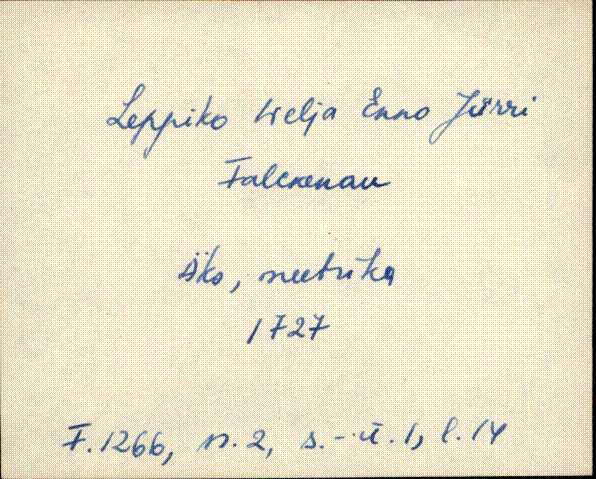 Leppiko Welja Enno Jürri
Falckenau
Äks, meetrika
1727
F. 1266, n. 2, s.-ü. 1, l. 14